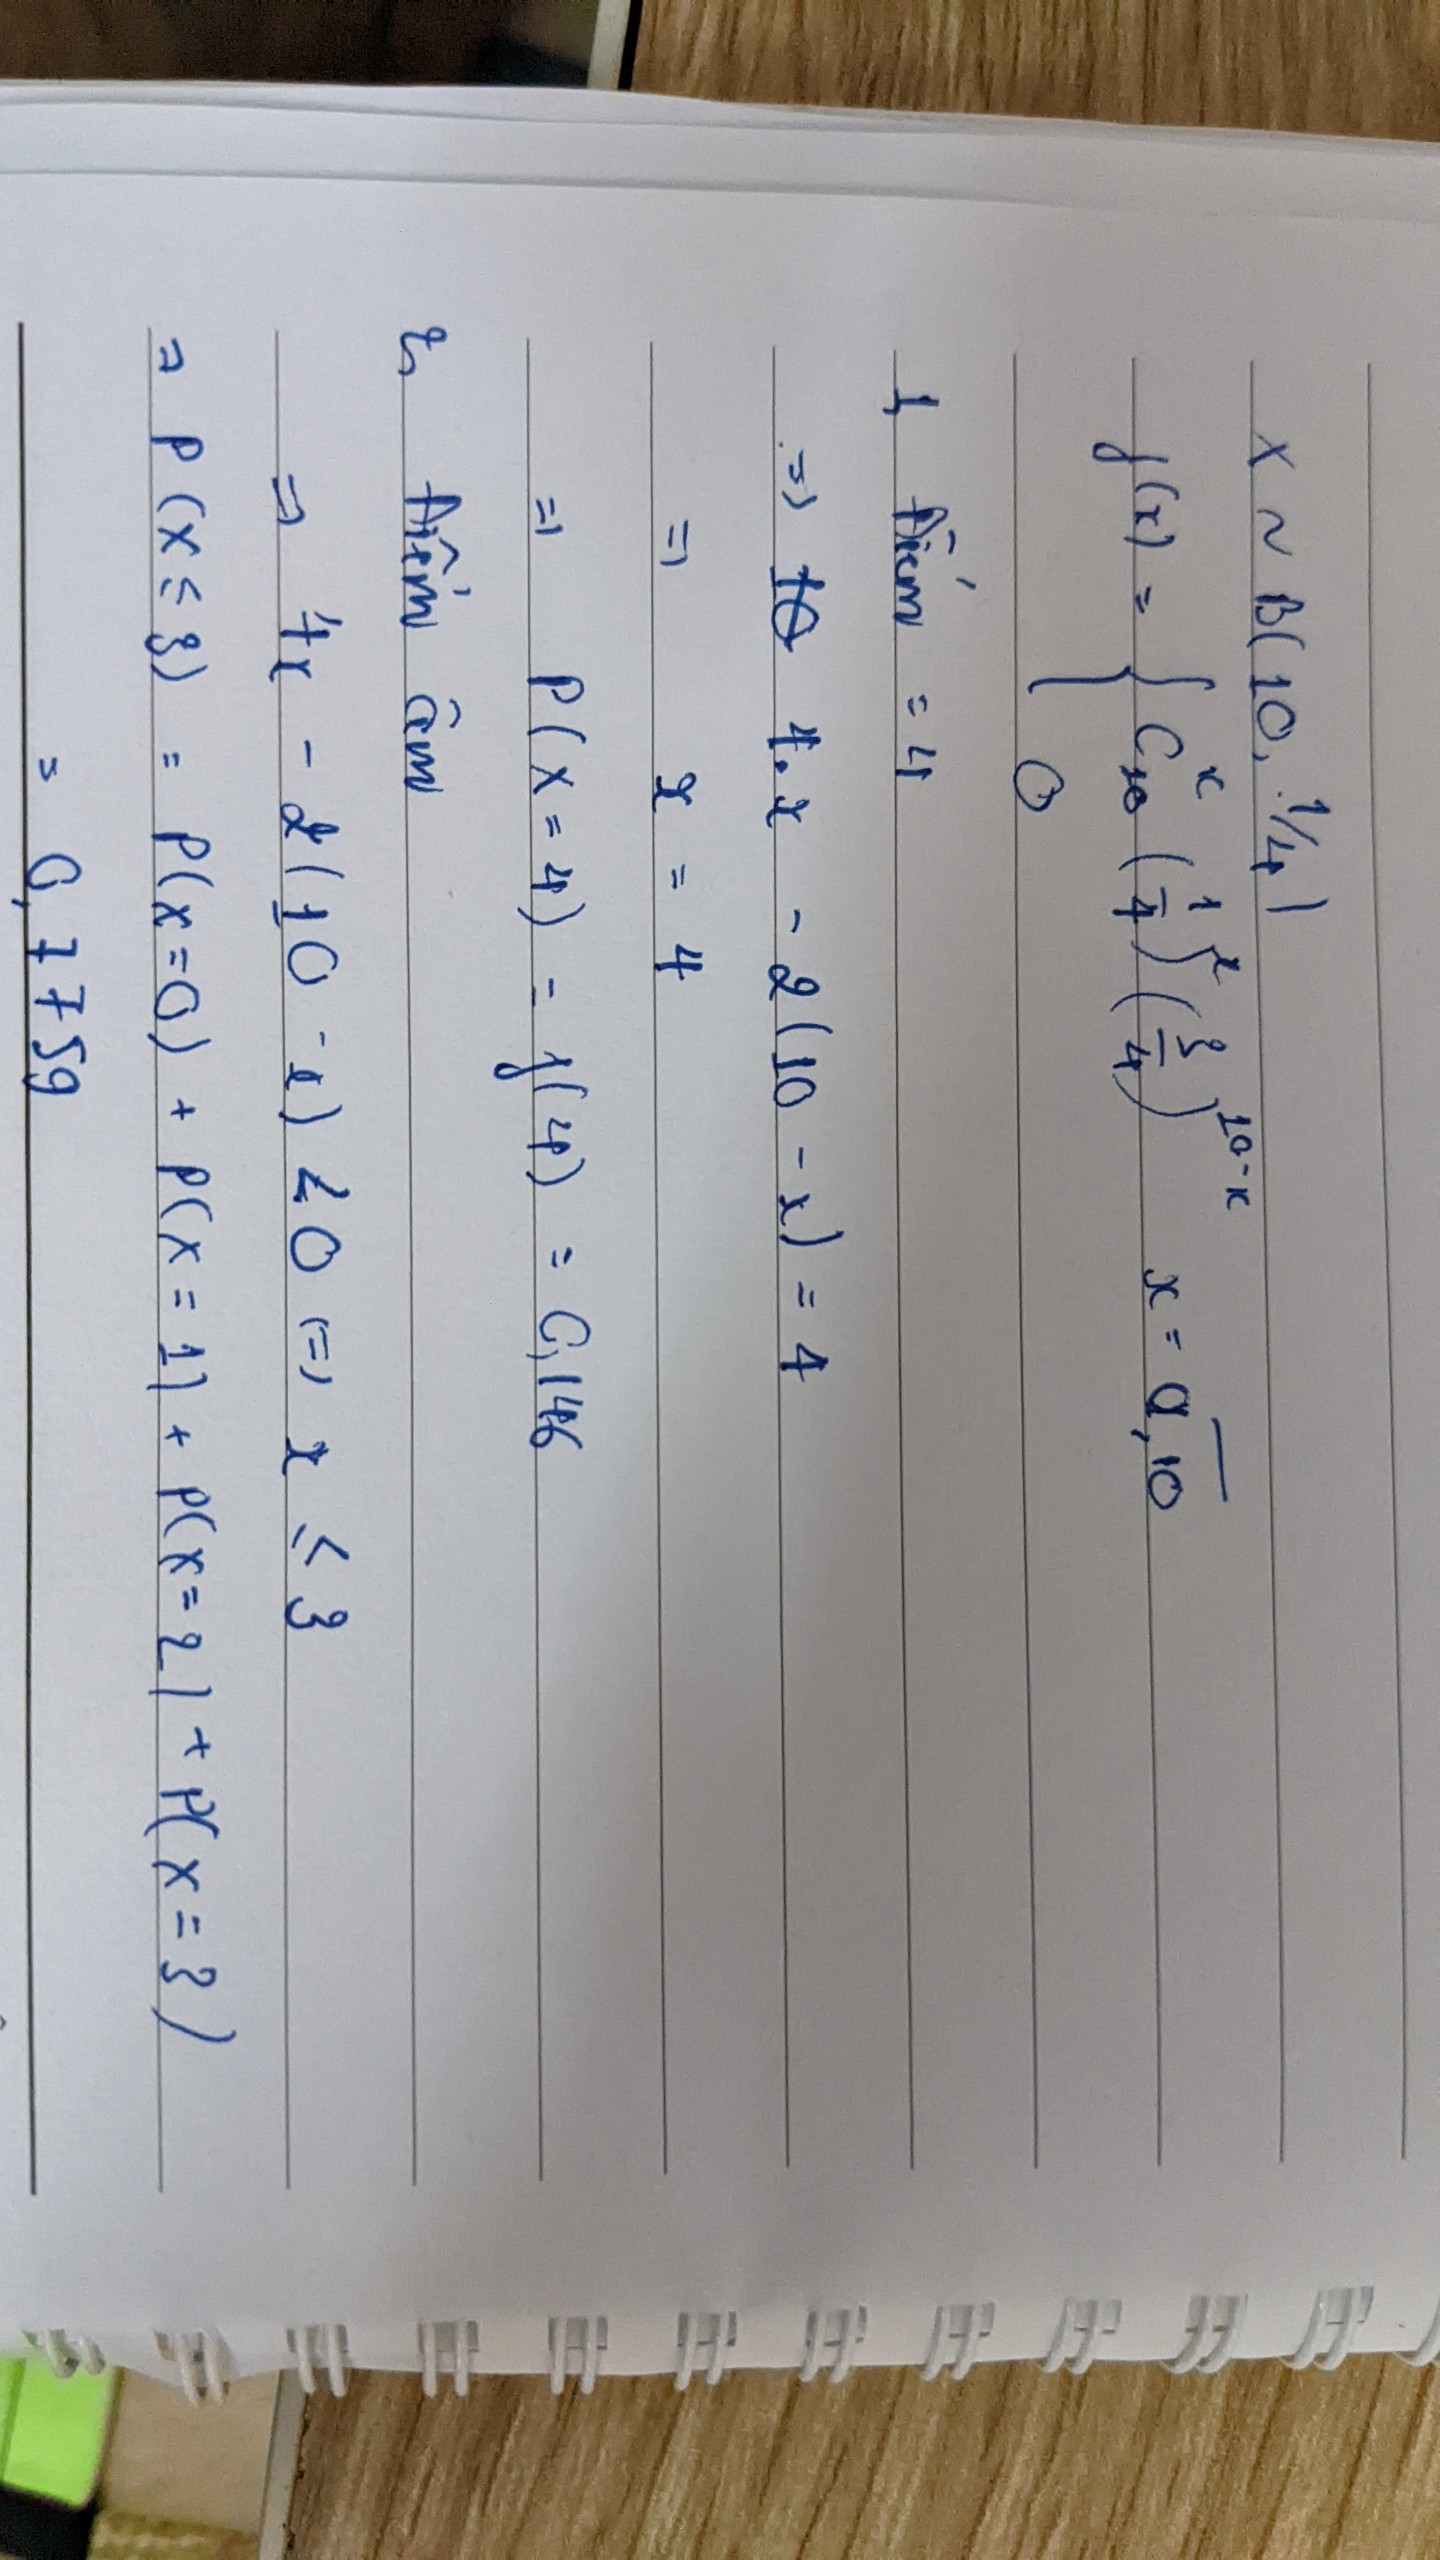 X ~ B(10, 1/4)
f(x) = { C₁₀ˣ (1/4)ˣ (3/4)¹⁰⁻ˣ x = 0,10
0
1, Điểm = 4
=> 10 4.x - 2(10 - x) = 4
=> x = 4
=> P(X = 4) = f(4) = 0,146
2, Điểm âm
=> 4x - 2(10 - x) < 0 <=> x ≤ 3
=> P(X ≤ 3) = P(X=0) + P(X = 1) + P(X = 2) + P(X = 3)
= 0,7759